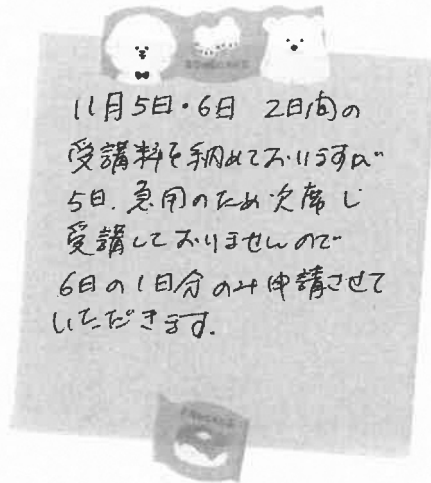 11月5日・6日 2日間の
受講料を納めておりますが
5日、急用のため欠席し
受講しておりませんので
6日の1日分のみ申請させて
いただきます。